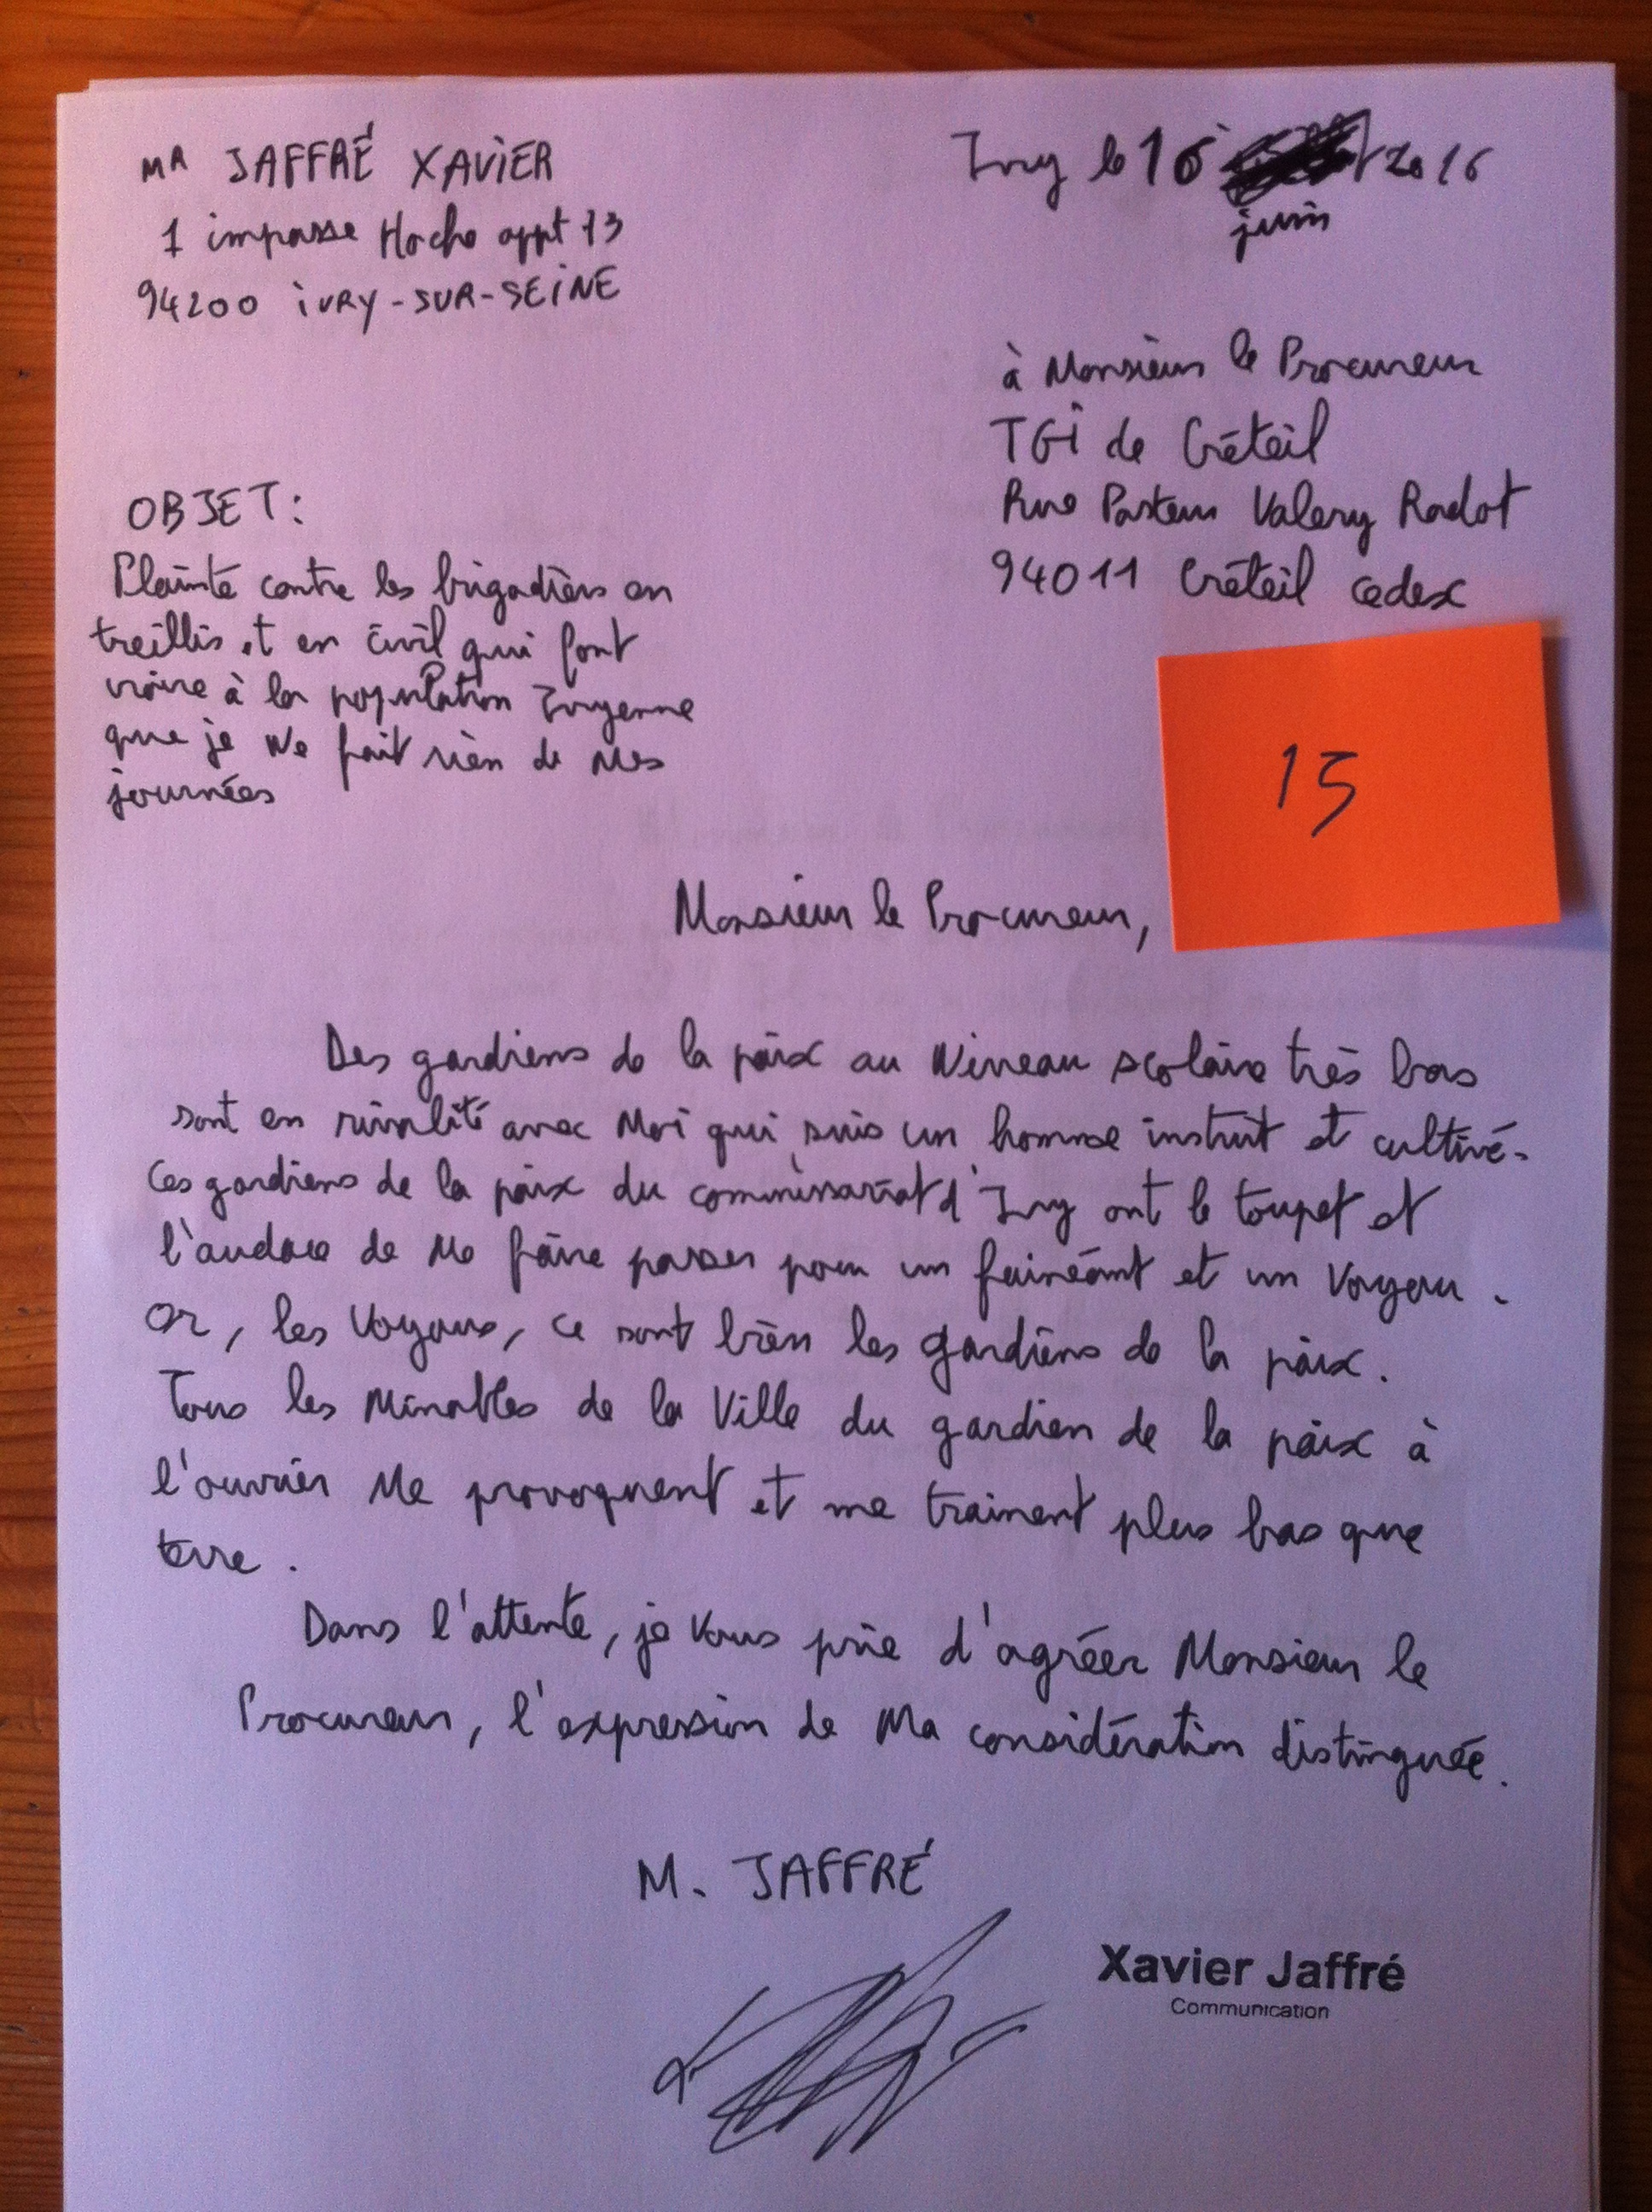 MR JAFFRÉ XAVIER
1 impasse Hoche appt 13
94200 IVRY-SUR-SEINE
Ivry le 16 2016
juin
à Monsieur le Procureur
TGI de Créteil
Rue Pasteur Valery Radot
94011 Créteil cedex
OBJET:
Plainte contre les brigadiers en
treillis et en civil qui font
croire à la population Ivryenne
que je ne fait rien de mes
journées
15
Monsieur le Procureur,
Des gardiens de la paix au niveau scolaire très bas
sont en rivalité avec moi qui suis un homme instruit et cultivé.
Ces gardiens de la paix du commissariat d'Ivry ont le toupet et
l'audace de me faire passer pour un fainéant et un voyou.
Or, les voyous, ce sont bien les gardiens de la paix.
Tous les minables de la ville du gardien de la paix à
l'ouvrier me provoquent et me trainent plus bas que
terre.
Dans l'attente, je vous prie d'agréer Monsieur le
Procureur, l'expression de ma considération distinguée.
M. JAFFRÉ
Xavier Jaffré
Communication